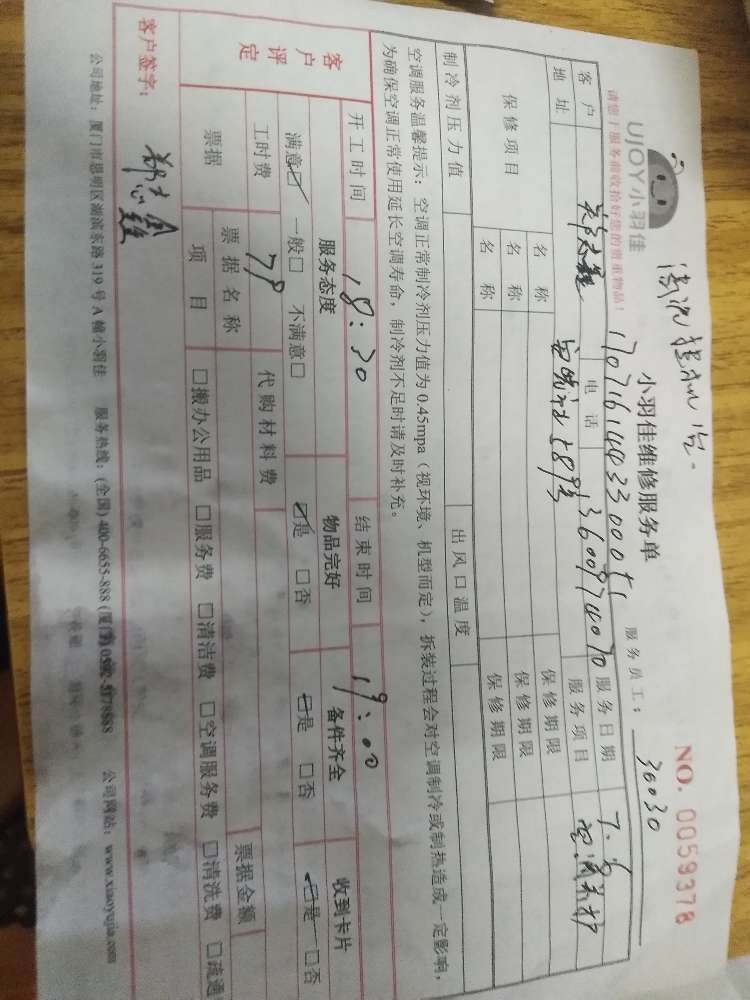 清洗挂机1台.
UJOY小羽佳
小羽佳维修服务单
NO. 0059378
请您!服务前收拾好您的贵重物品!
17071614033000
服务员工: 36030
客户
电话 13600974070
服务日期 7.6
地址
服务项目 空调养护
保修项目
名称 保修期限
名称 保修期限
名称 保修期限
制冷剂压力值 出风口温度
空调服务温馨提示:空调正常制冷剂压力值为0.45mpa(视环境、机型而定),拆装过程会对空调制冷或制热造成一定影响,
为确保空调正常使用延长空调寿命,制冷剂不足时请及时补充。
开工时间 18:30 结束时间 19:00
客户评定
服务态度 物品完好 备件齐全 收到卡片
满意☑ 一般□ 不满意□ ☑是 □否 ☑是 □否 ☑是 □否
工时费 79 代购材料费
票据 票据名称 票据金额
项目 □搬办公用品 □服务费 □清洁费 □空调服务费 □清洗费 □疏通
客户签字:
公司地址:厦门市思明区湖滨东路319号A幢小羽佳 服务热线:(全国)400-6655-888(厦门)0592-5178888 公司网站:www.xiaoyujia.com